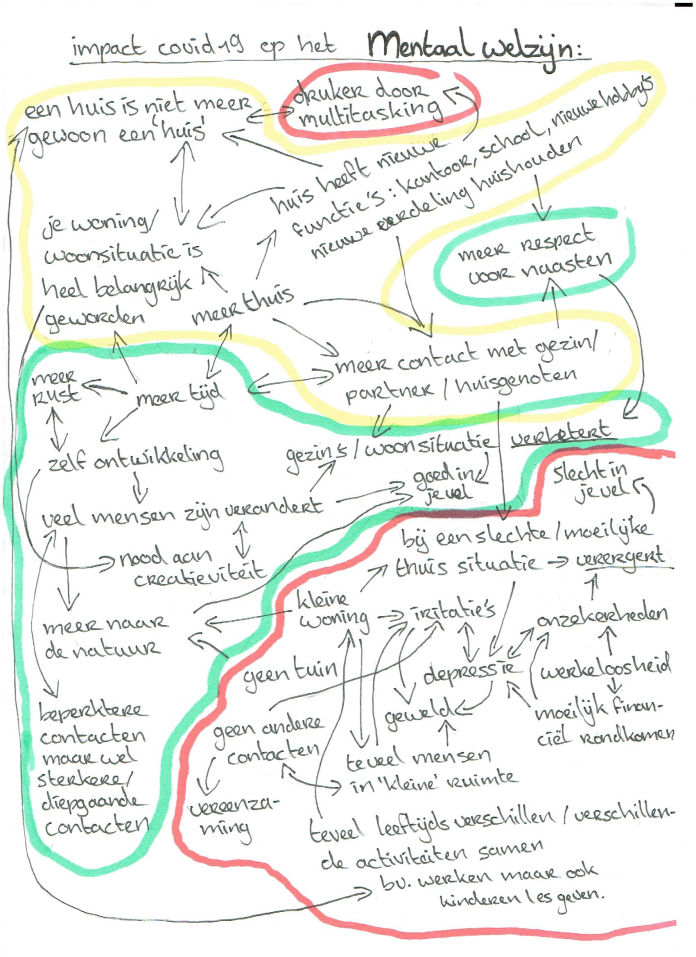 impact covid-19 op het Mentaal welzijn:
een huis is niet meer
gewoon een 'huis'
drukker door
multitasking
huis heeft nieuwe
functie's: kantoor, school, nieuwe hobby's
nieuwe verdeling huishouden
je woning/
woonsituatie is
heel belangrijk
geworden
meer thuis
meer respect
voor naasten
meer contact met gezin/
partner/huisgenoten
meer
rust
meer tijd
zelf ontwikkeling
gezins/woonsituatie verbetert
veel mensen zijn verandert
goed in/
je vel
nood aan
creatieviteit
slecht in
je vel
bij een slechte/moeilijke
thuis situatie → verergert
meer naar
de natuur
kleine
woning
iritatie's
onzekerheden
geen tuin
depressie
werkeloosheid
geweld
moeilijk finan-
ciël rondkomen
beperktere
contacten
maar wel
sterkere/
diepgaande
contacten
geen andere
contacten
teveel mensen
in 'kleine' ruimte
vereenza-
ming
teveel leeftijds verschillen/verschillen-
de activiteiten samen
bv. werken maar ook
kinderen les geven.